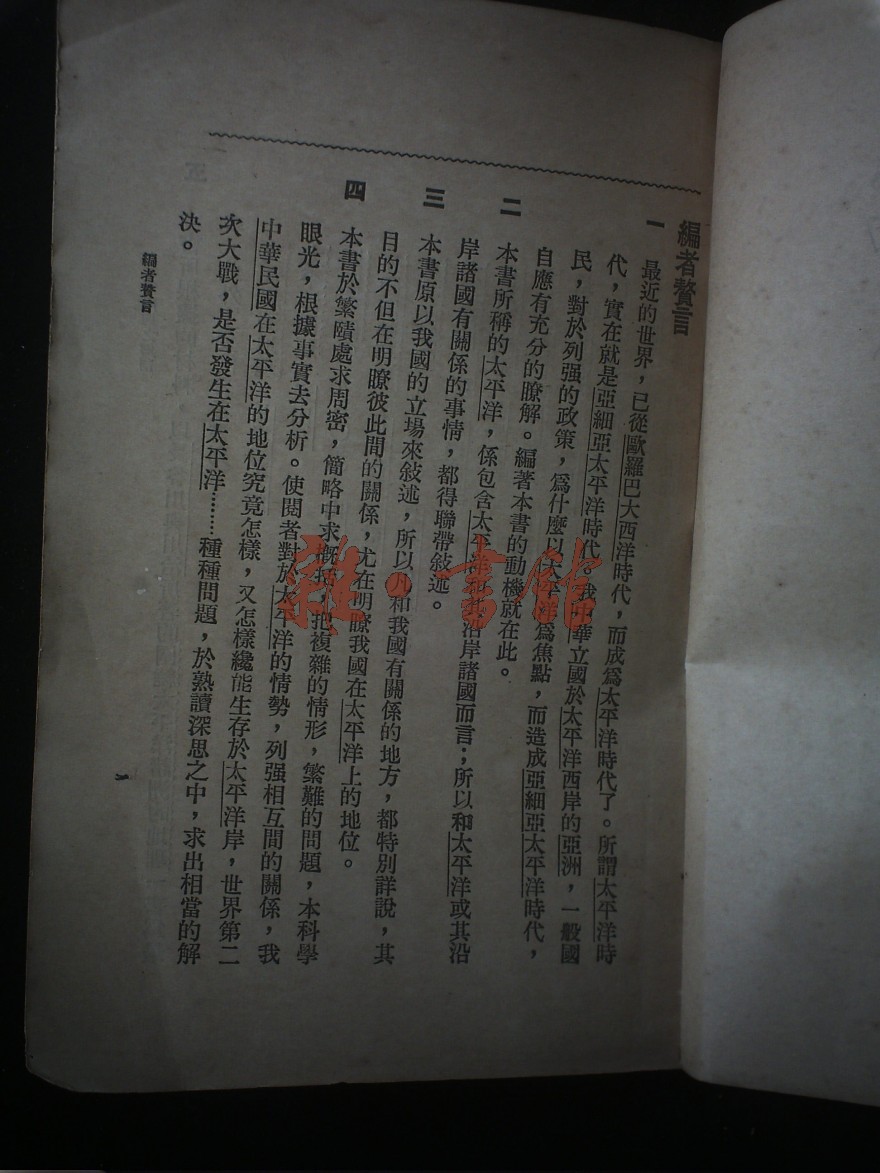 編者贅言
一 最近的世界，已從歐羅巴大西洋時代，而成爲太平洋時代了。所謂太平洋時
代，實在就是亞細亞太平洋時代。我中華立國於太平洋西岸的亞洲，一般國
民，對於列强的政策，爲什麼以太平洋爲焦點，而造成亞細亞太平洋時代，
自應有充分的瞭解。編著本書的動機就在此。
二 本書所稱的太平洋，係包含太平洋和沿岸諸國而言；所以和太平洋或其沿
岸諸國有關係的事情，都得聯帶敍述。
三 本書原以我國的立場來敍述，所以凡和我國有關係的地方，都特別詳說，其
目的不但在明瞭彼此間的關係，尤在明瞭我國在太平洋上的地位。
四 本書於繁賾處求周密，簡略中求概括，把複雜的情形，繁難的問題，本科學
眼光，根據事實去分析。使閱者對於太平洋的情勢，列强相互間的關係，我
中華民國在太平洋的地位究竟怎樣，又怎樣纔能生存於太平洋岸，世界第二
次大戰，是否發生在太平洋……種種問題，於熟讀深思之中，求出相當的解
決。
編者贅言
一
雜·書館